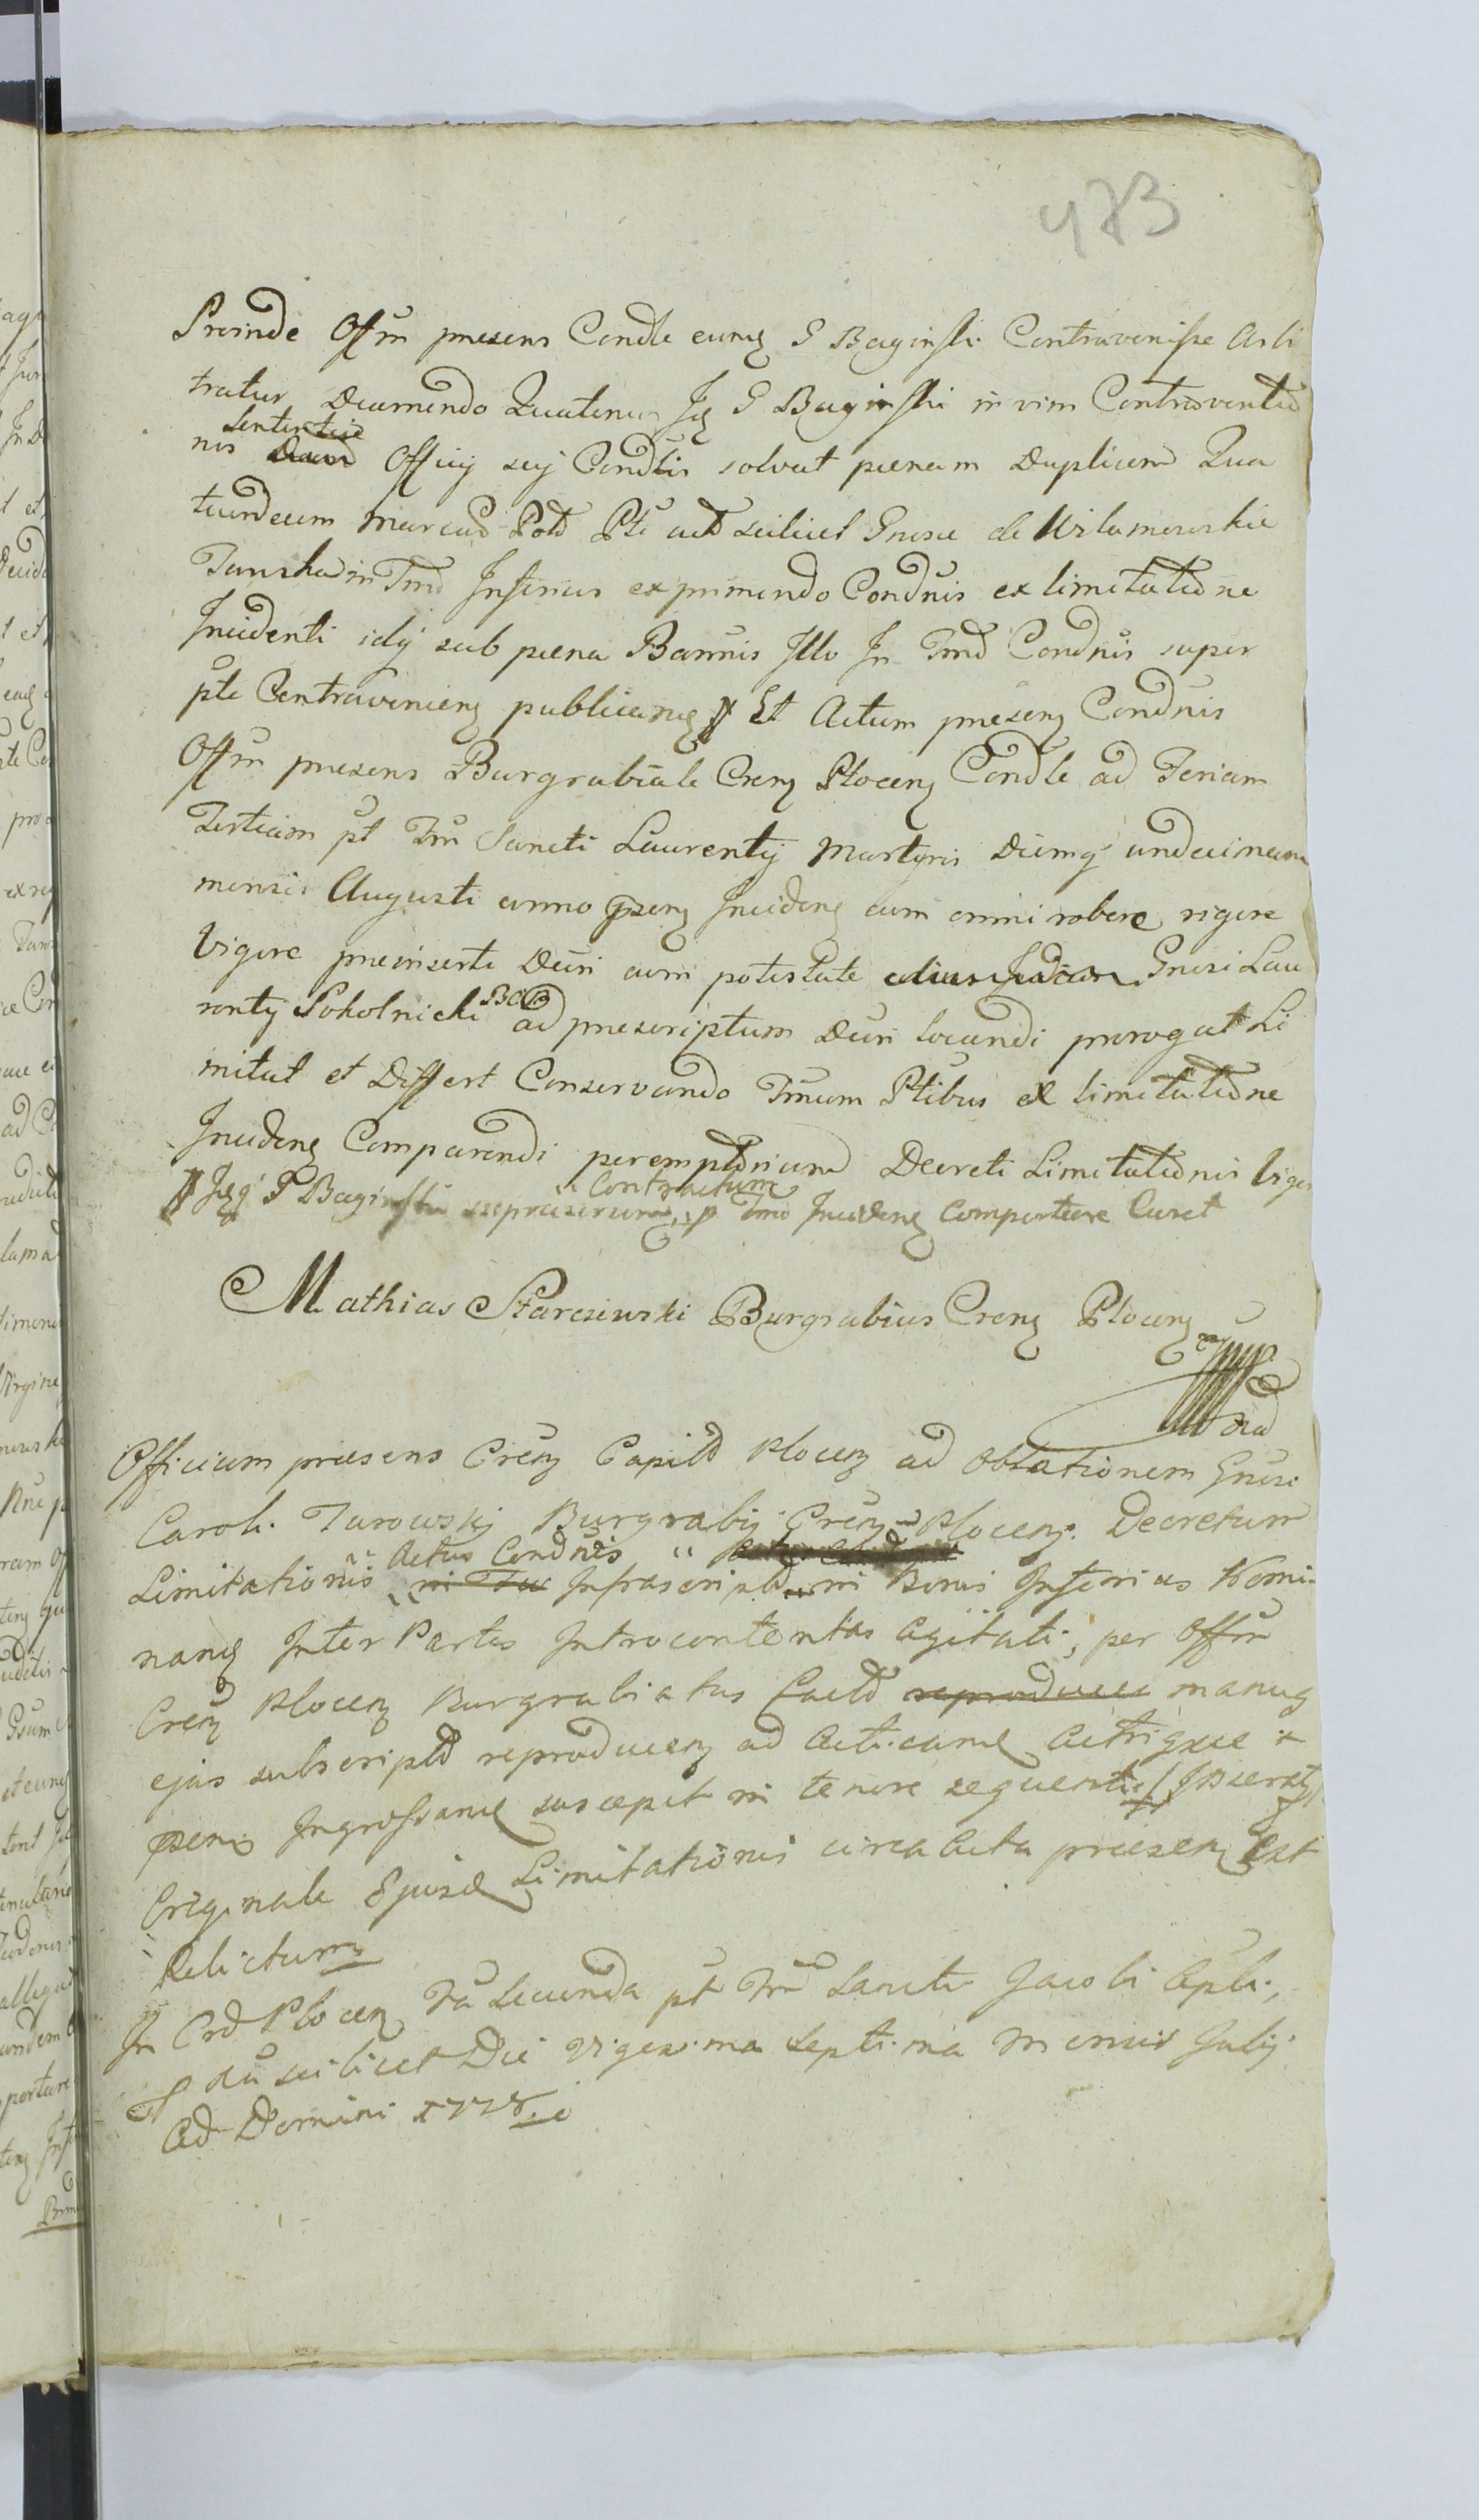 473
Proinde Offm presens Condle eumq G Baginski Contravenisse Arbi
tratur Decernendo Quatenus Jq G Baginski in vim Contraventio
nis Sententiae Officij seij Condlis solvat penam Duplicem Qua
tuordecem Marcas Polo Pti act scilicet Gnose de Wilamowskie
Tanska in Tmo Inferius exprimendo Condnis ex limitatione
Incidenti idq sub pena Bannis Illo In Tmo Condnis super
pte Contravenienq publicanq Et Actum presenq Condnis
Offm presens Burgrabiale Crenq Plocenq Condle ad Feriam
Tertiam pt Fm Sancti Laurentij Martyris Diemq undecimam
mensis Augusti anno psenq Incidenq cum omni robore rigore
Vigore preinserti Dcni cum potestate Gnosi Lau
rentij Sokolnicki ad prescriptum Dcni locandi prorogat Li
mitat et Differt Conservando Tmum Ptibus ex limitatione
Incidenq Comparendi peremptorium Decreti Limitationis Vigo
Jqq P Baginski Contractum Tmo Incidenq Comportare Curet
Mathias Starczewski Burgrabius Crenq Plocenq
Officium praesens Crenq Capito Plocenq ad Oblationem Gnosi
Caroli Turowskij Burgrabij Crenq Plocenq Decretum
Actus Condnis
Limitationis Infrascripto in Bonis Inferius Nomi
nanq Inter Partes Introcontentas Agitati, per Offm
Crenq Plocenq Burgrabiatus Facto reproducen manuq
ejus subscripto reproducenq ad Acticanq Actrigxe
psenq Ingrossanq suscepit in tenore sequenti
Originale Ejusd Limitationis circa Acta praesenq Est
Relictum
In Cro Plocen Fa Secunda pt Fm Sancti Jacobi Apli,
scilicet Die Vigesima Septima Mensis Julij
Ao Domini 1778